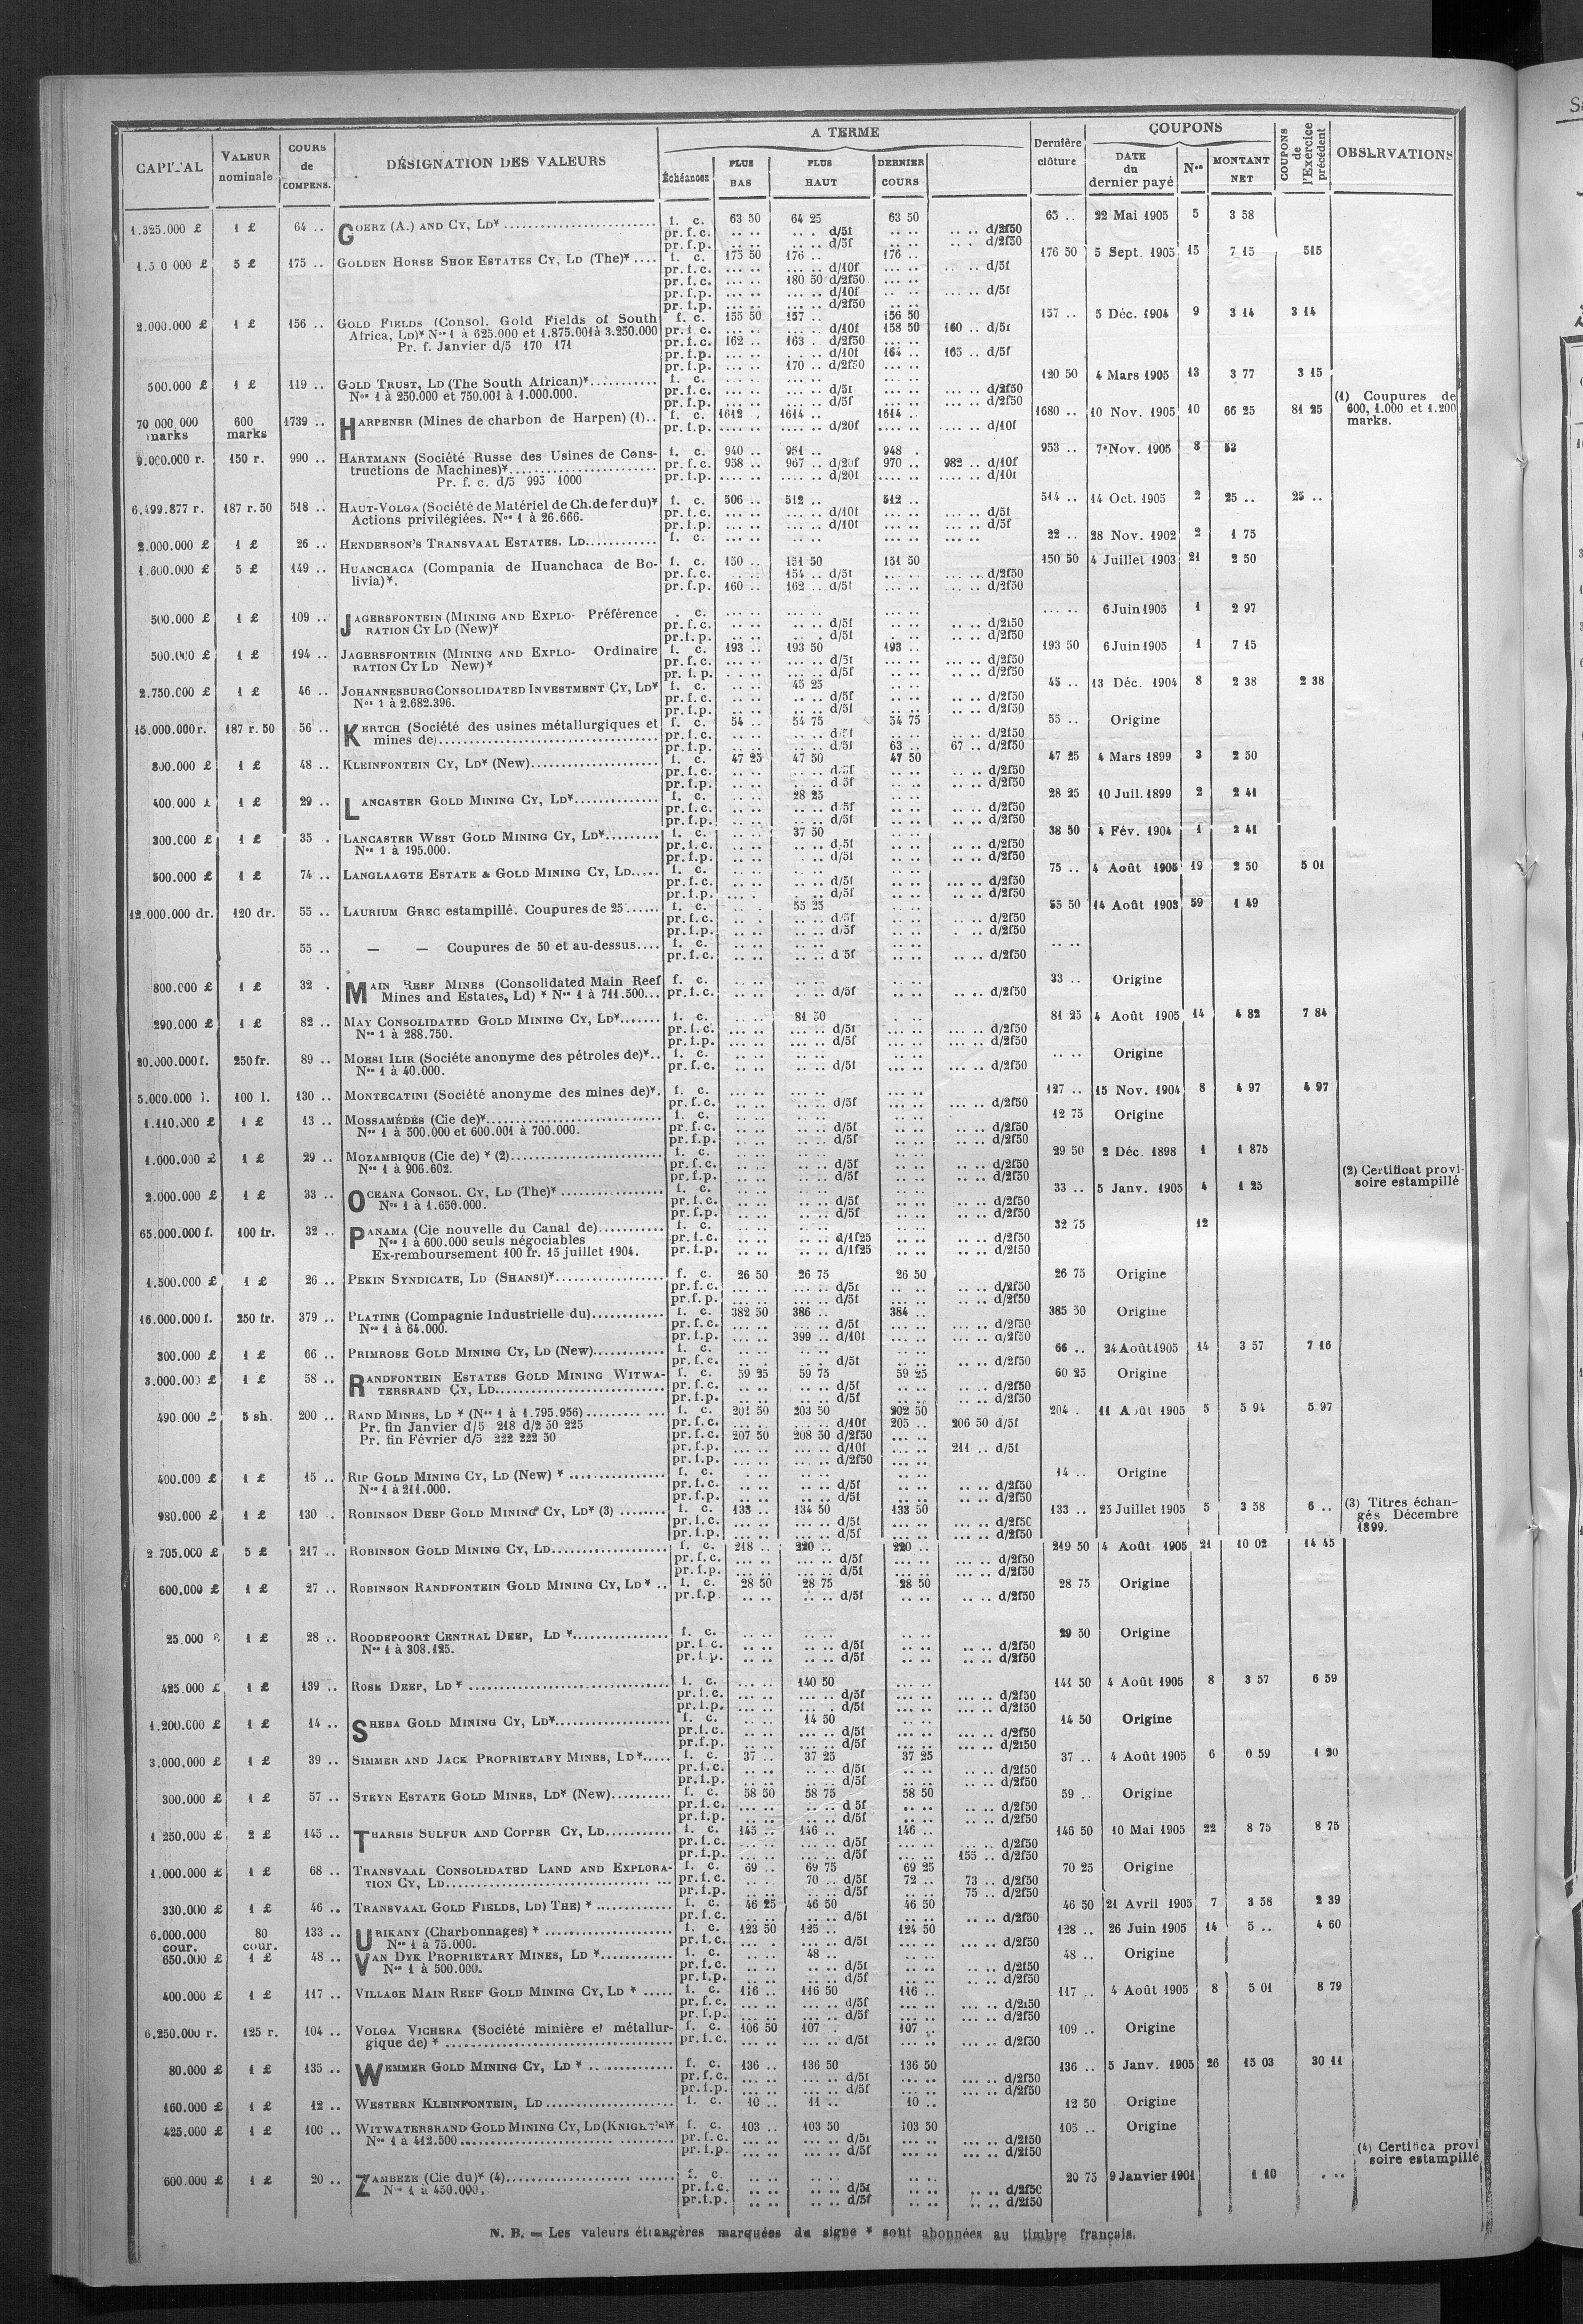 A TERME
COUPONS
CAPITAL
VALEUR nominale
COURS de COMPENS.
DÉSIGNATION DES VALEURS
Échéances
PLUS BAS
PLUS HAUT
DERNIER COURS
Dernière clôture
DATE du dernier payé
Nos
MONTANT NET
COUPONS de l'Exercice précédent
OBSERVATIONS
1.325.000 £ 1 £ 64 .. GOERZ (A.) AND CY, LD* f. c. 63 50 64 25 63 50 65 .. 22 Mai 1905 5 3 58
pr. f. c. .. .. .. .. d/5f .. .. .. .. d/2f50
pr. f. p. .. .. .. .. d/5f .. .. .. .. d/2f50
5 £ 175 .. GOLDEN HORSE SHOE ESTATES CY, LD (The)* f. c. 175 50 176 .. 176 .. 176 50 5 Sept. 1905 15 7 15 515
pr. f. c. d/10f d/5f
pr. f. c. 180 50 d/2f50
pr. f. p. d/10f d/5f
pr. f. p. d/2f50
2.000.000 £ 1 £ 156 .. GOLD FIELDS (Consol. Gold Fields of South f. c. 155 50 157 .. 156 50 157 .. 5 Déc. 1904 9 3 14 3 14
Africa, LD)* Nos 1 à 625.000 et 1.875.001 à 3.250.000 pr. f. c. d/10f 158 50 160 .. d/5f
Pr. f. Janvier d/5 170 171 pr. f. c. 162 .. 163 . d/2f50
pr. f. p. d/10f 164 .. 165 .. d/5f
pr. f. p. 170 .. d/2f50
500.000 £ 1 £ 119 .. GOLD TRUST, LD (The South African)* f. c. 120 50 4 Mars 1905 13 3 77 3 15
Nos 1 à 250.000 et 750.001 à 1.000.000. pr. f. c. d/5f d/2f50
pr. f. p. d/5f d/2f50
70 000 000 marks 600 marks 1739 .. HARPENER (Mines de charbon de Harpen) (1) f. c. 1612 . 1614 .. 1614 .. 1680 .. 10 Nov. 1905 10 66 25 81 25 (1) Coupures de 600, 1.000 et 1.200 marks.
pr. f. p. d/20f d/10f
9.000.000 r. 150 r. 990 .. HARTMANN (Société Russe des Usines de Cons- f. c. 940 .. 951 .. 948 . 953 .. 7 Nov. 1905 8 53
tructions de Machines)* pr. f. c. 958 .. 967 .. d/20f 970 .. 982 .. d/10f
Pr. f. c. d/5 995 1000 pr. f. p. d/20f d/10f
6.499.877 r. 187 r. 50 518 .. HAUT-VOLGA (Société de Matériel de Ch. de fer du)* f. c. 506 .. 512 .. 512 .. 514 .. 14 Oct. 1905 2 25 .. 25 ..
Actions privilégiées. Nos 1 à 26.666. pr. f. c. d/10f d/5f
pr. f. p. d/10f d/5f
2.000.000 £ 1 £ 26 .. HENDERSON'S TRANSVAAL ESTATES. LD f. c. 22 .. 28 Nov. 1902 2 1 75
1.600.000 £ 5 £ 149 .. HUANCHACA (Compania de Huanchaca de Bo- f. c. 150 .. 151 50 151 50 150 50 4 Juillet 1903 21 2 50
livia)*. pr. f. c. 154 .. d/5f d/2f50
pr. f. p. 160 .. 162 .. d/5f d/2f50
500.000 £ 1 £ 109 .. JAGERSFONTEIN (MINING AND EXPLO- Préférence . c. 6 Juin 1905 1 2 97
RATION CY LD (New)* pr. f. c. d/5f d/2f50
pr. f. p. d/5f d/2f50
500.000 £ 1 £ 194 .. JAGERSFONTEIN (MINING AND EXPLO- Ordinaire f. c. 193 .. 193 50 193 .. 193 50 6 Juin 1905 1 7 15
RATION CY LD New)* pr. f. c. d/5f d/2f50
pr. f. p. d/5f d/2f50
2.750.000 £ 1 £ 46 .. JOHANNESBURG CONSOLIDATED INVESTMENT CY, LD* f. c. 45 25 45 .. 13 Déc. 1904 8 2 38 2 38
Nos 1 à 2.682.396. pr. f. c. d/5f d/2f50
pr. f. p. d/5f d/2f50
15.000.000 r. 187 r. 50 56 .. KERTCH (Société des usines métallurgiques et f. c. 54 .. 54 75 54 75 55 .. Origine
mines de) pr. f. c. d/5f d/2f50
pr. f. p. d/5f 63 .. 67 .. d/2f50
800.000 £ 1 £ 48 .. KLEINFONTEIN CY, LD* (New) f. c. 47 25 47 50 47 50 47 25 4 Mars 1899 3 2 50
pr. f. c. d/5f d/2f50
pr. f. p. d/5f d/2f50
400.000 £ 1 £ 29 .. LANCASTER GOLD MINING CY, LD* f. c. 28 25 28 25 10 Juil. 1899 2 2 41
pr. f. c. d/5f d/2f50
pr. f. p. d/5f d/2f50
300.000 £ 1 £ 35 . LANCASTER WEST GOLD MINING CY, LD* f. c. 37 50 38 50 4 Fév. 1904 1 2 41
Nos 1 à 195.000. pr. f. c. d/5f d/2f50
pr. f. p. d/5f d/2f50
500.000 £ 1 £ 74 .. LANGLAAGTE ESTATE & GOLD MINING CY, LD f. c. 75 .. 4 Août 1905 19 2 50 5 01
pr. f. c. d/5f d/2f50
pr. f. p. d/5f d/2f50
12.000.000 dr. 120 dr. 55 .. LAURIUM GREC estampillé. Coupures de 25 f. c. 55 25 55 50 14 Août 1903 59 1 49
pr. f. c. d/5f d/2f50
pr. f. p. d/5f d/2f50
55 .. — — Coupures de 50 et au-dessus f. c.
pr. f. c. d/5f d/2f50
800.000 £ 1 £ 32 . MAIN REEF MINES (Consolidated Main Reef f. c. 33 .. Origine
Mines and Estates, Ld) * Nos 1 à 711.500 pr. f. c. d/5f d/2f50
290.000 £ 1 £ 82 .. MAY CONSOLIDATED GOLD MINING CY, LD* f. c. 81 50 81 25 4 Août 1905 14 4 82 7 84
Nos 1 à 288.750. pr. f. c. d/5f d/2f50
pr. f. p. d/5f d/2f50
20.000.000 f. 250 fr. 89 .. MOESI ILIR (Société anonyme des pétroles de)* f. c. Origine
Nos 1 à 40.000. pr. f. c. d/5f d/2f50
5.000.000 l. 100 l. 130 .. MONTECATINI (Société anonyme des mines de)* f. c. 127 .. 15 Nov. 1904 8 4 97 4 97
pr. f. c. d/5f d/2f50
1.110.000 £ 1 £ 13 .. MOSSAMÉDÈS (Cie de)* f. c. 12 75 Origine
Nos 1 à 500.000 et 600.001 à 700.000. pr. f. c. d/5f d/2f50
pr. f. p. d/5f d/2f50
1.000.000 £ 1 £ 29 .. MOZAMBIQUE (Cie de) * (2) f. c. 29 50 2 Déc. 1898 1 1 875 (2) Certificat provi-
Nos 1 à 906.602. pr. f. c. d/5f d/2f50 soire estampillé
pr. f. p. d/5f d/2f50
2.000.000 £ 1 £ 33 .. OCEANA CONSOL. CY, LD (The)* f. c. 33 .. 5 Janv. 1905 4 1 25
Nos 1 à 1.659.000. pr. f. c. d/5f d/2f50
pr. f. p. d/5f d/2f50
65.000.000 f. 100 fr. 32 .. PANAMA (Cie nouvelle du Canal de) f. c. 32 75 12
Nos 1 à 600.000 seuls négociables pr. f. c. d/1f25 d/2f50
Ex-remboursement 100 fr. 15 juillet 1904. pr. f. p. d/1f25 d/2f50
1.500.000 £ 1 £ 26 .. PEKIN SYNDICATE, LD (SHANSI)* f. c. 26 50 26 75 26 50 26 75 Origine
pr. f. c. d/5f d/2f50
pr. f. p. d/5f d/2f50
16.000.000 f. 250 fr. 379 .. PLATINE (Compagnie Industrielle du) f. c. 382 50 386 .. 384 .. 385 50 Origine
Nos 1 à 64.000. pr. f. c. d/5f d/2f50
pr. f. p. 399 .. d/10f d/2f50
300.000 £ 1 £ 66 .. PRIMROSE GOLD MINING CY, LD (New) f. c. 66 .. 24 Août 1905 14 3 57 7 16
pr. f. c. d/5f d/2f50
3.000.000 £ 1 £ 58 .. RANDFONTEIN ESTATES GOLD MINING WITWA- f. c. 59 25 59 75 59 25 60 25 Origine
TERSRAND CY, LD pr. f. c. d/5f d/2f50
pr. f. p. d/5f d/2f50
490 000 £ 5 sh. 200 .. RAND MINES, LD * (Nos 1 à 1.795.956) f. c. 201 50 203 50 202 50 204 . 11 Août 1905 5 5 94 5 97
Pr. fin Janvier d/5 218 d/2 50 225 pr. f. c. d/10f 205 .. 206 50 d/5f
Pr. fin Février d/5 222 222 50 pr. f. c. 207 50 208 50 d/2f50
pr. f. p. d/10f 211 .. d/5f
pr. f. p. d/2f50
400.000 £ 1 £ 15 .. RIP GOLD MINING CY, LD (New) * f. c. 14 .. Origine
Nos 1 à 211.000. pr. f. c. d/5f d/2f50
pr. f. p. d/5f d/2f50
980.000 £ 1 £ 130 .. ROBINSON DEEP GOLD MINING CY, LD* (3) f. c. 133 .. 134 50 133 50 133 .. 25 Juillet 1905 5 3 58 6 .. (3) Titres échan-
pr. f. c. d/5f d/2f50 gés Décembre
pr. f. p. d/5f d/2f50 1899.
2.705.000 £ 5 £ 217 .. ROBINSON GOLD MINING CY, LD f. c. 218 .. 220 .. 220 .. 219 50 4 Août 1905 21 10 02 14 45
pr. f. c. d/5f d/2f50
pr. f. p. d/5f d/2f50
600.000 £ 1 £ 27 .. ROBINSON RANDFONTEIN GOLD MINING CY, LD * f. c. 28 50 28 75 28 50 28 75 Origine
pr. f. p. d/5f d/2f50
25.000 1 £ 28 .. ROODEPOORT CENTRAL DEEP, LD * f. c. 29 50 Origine
Nos 1 à 308.125. pr. f. c. d/5f d/2f50
pr. f. p. d/5f d/2f50
425.000 £ 1 £ 139 .. ROSE DEEP, LD * f. c. 140 50 141 50 4 Août 1905 8 3 57 6 59
pr. f. c. d/5f d/2f50
pr. f. p. d/5f d/2f50
1.200.000 £ 1 £ 14 .. SHEBA GOLD MINING CY, LD* f. c. 14 50 14 50 Origine
pr. f. c. d/5f d/2f50
pr. f. p. d/5f d/2f50
3.000.000 £ 1 £ 39 .. SIMMER AND JACK PROPRIETARY MINES, LD* f. c. 37 .. 37 25 37 25 37 .. 4 Août 1905 6 0 59 1 20
pr. f. c. d/5f d/2f50
pr. f. p. d/5f d/2f50
300.000 £ 1 £ 57 .. STEYN ESTATE GOLD MINES, LD* (New) f. c. 58 50 58 75 58 50 59 .. Origine
pr. f. c. d 5f d/2f50
pr. f. p. d/5f d/2f50
1 250.000 £ 2 £ 145 .. THARSIS SULFUR AND COPPER CY, LD f. c. 145 .. 146 .. 146 .. 146 50 10 Mai 1905 22 8 75 8 75
pr. f. c. d/5f d/2f50
pr. f. p. d/5f 155 .. d/2f50
1.000.000 £ 1 £ 68 .. TRANSVAAL CONSOLIDATED LAND AND EXPLORA- f. c. 69 .. 69 75 69 25 70 25 Origine
TION CY, LD pr. f. c. 70 .. d/5f 72 .. 73 .. d/2f50
pr. f. p. d/5f 75 .. d/2f50
330.000 £ 1 £ 46 .. TRANSVAAL GOLD FIELDS, LD) THE) * f. c. 46 25 46 50 46 50 46 50 21 Avril 1905 7 3 58 2 39
pr. f. c. d/5f d/2f50
6.000.000 cour. 80 cour. 133 .. URIKANY (Charbonnages) * f. c. 123 50 125 .. 124 50 128 .. 26 Juin 1905 14 5 .. 4 60
Nos 1 à 75.000. pr. f. c. d/5f d/2f50
650.000 £ 1 £ 48 .. VAN DYK PROPRIETARY MINES, LD * f. c. 48 .. 48 .. Origine
Nos 1 à 500.000. pr. f. c. d/5f d/2f50
pr. f. p. d/5f d/2f50
400.000 £ 1 £ 117 .. VILLAGE MAIN REEF GOLD MINING CY, LD * f. c. 116 .. 116 50 116 .. 117 .. 4 Août 1905 8 5 01 8 79
pr. f. c. d/5f d/2f50
pr. f. p. d/5f d/2f50
6.250.000 r. 125 r. 104 .. VOLGA VICHERA (Société minière et métallur- f. c. 106 50 107 . 107 .. 109 .. Origine
gique de) * pr. f. c. d/5f d/2f50
80.000 £ 1 £ 135 .. WEMMER GOLD MINING CY, LD * f. c. 136 .. 136 50 136 50 136 .. 5 Janv. 1905 26 15 03 30 11
pr. f. c. d/5f d/2f50
pr. f. p. d/5f d/2f50
160.000 £ 1 £ 12 .. WESTERN KLEINFONTEIN, LD f. c. 10 .. 11 .. 10 .. 12 50 Origine
425.000 £ 1 £ 100 .. WITWATERSRAND GOLD MINING CY, LD (KNIGHT'S)* f. c. 103 .. 103 50 103 50 105 .. Origine
Nos 1 à 412.500 pr. f. c. d/5f d/2f50 (4) Certifica provi
pr. f. p. d/5f d/2f50 soire estampillé
600.000 £ 1 £ 20 .. ZAMBEZE (Cie du)* (4) f. c. 20 75 9 Janvier 1901 1 10
Nos 1 à 450.000. pr. f. c. d/5f d/2f50
pr. f. p. d/5f d/2f50
N. B. — Les valeurs étrangères marquées du signe * sont abonnées au timbre français.